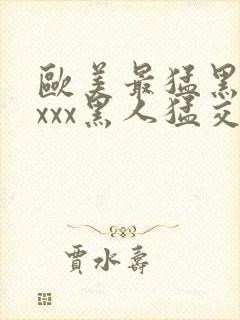 歐美最猛黑
xxx黑人猛交
賈水壽